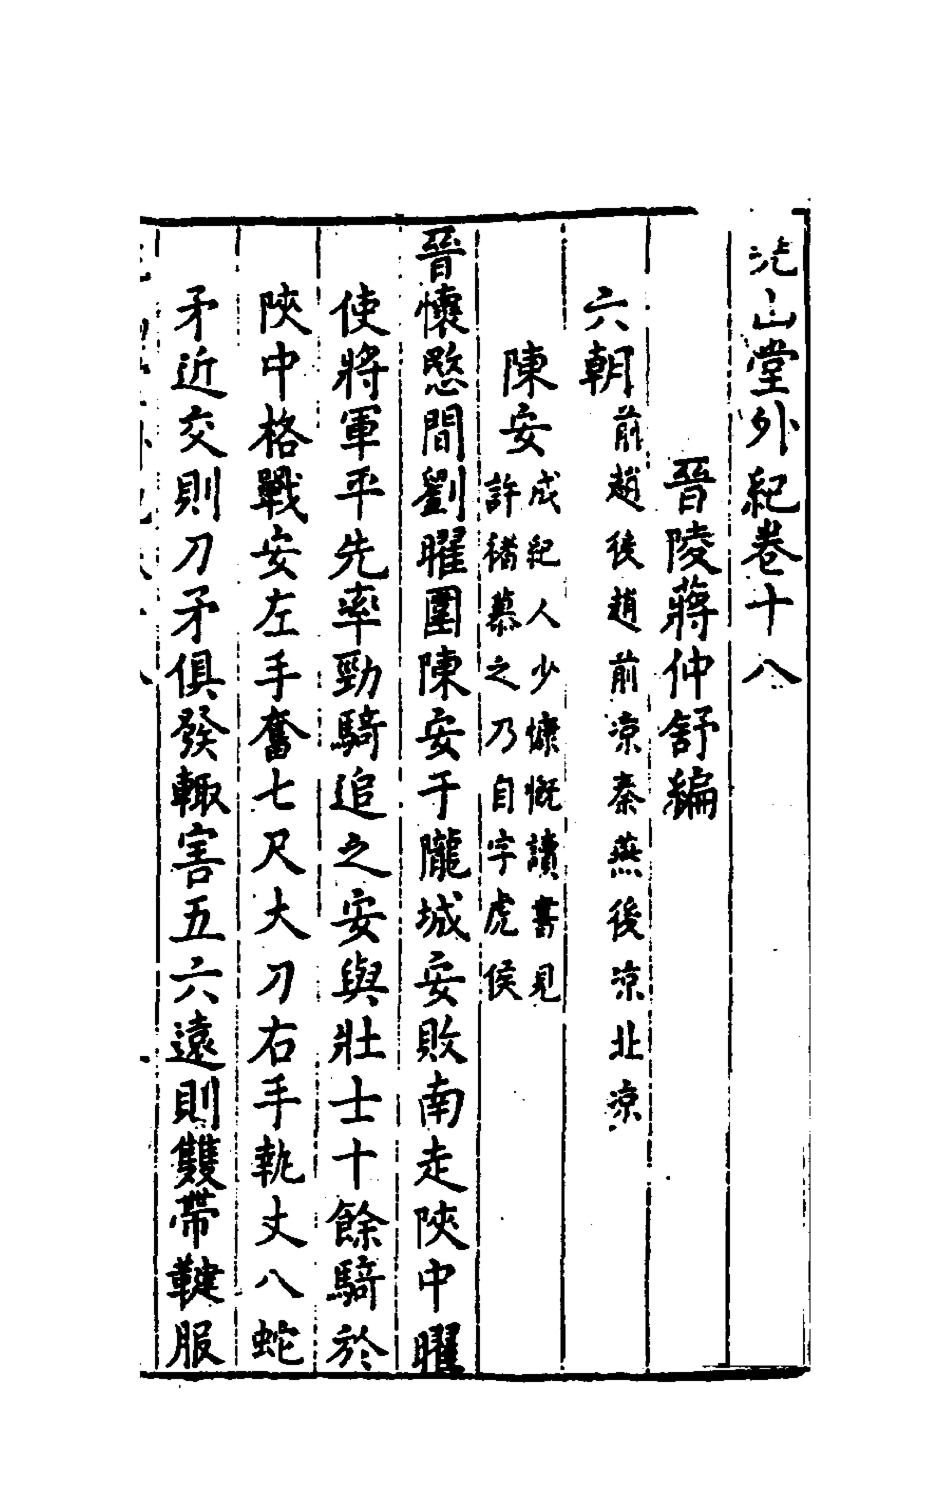 堯山堂外紀卷十八
晉陵蔣仲舒編
六朝前趙後趙前凉秦燕後凉北凉
陳安成紀人少慷慨讀書見許褚慕之乃自字虎侯
晉懷愍間劉曜圍陳安于隴城安敗南走陝中曜
使將軍平先率勁騎追之安與壯士十餘騎於
陝中格戰安左手奮七尺大刀右手執丈八蛇
矛近交則刀矛俱發輙害五六遠則雙帶鞬服